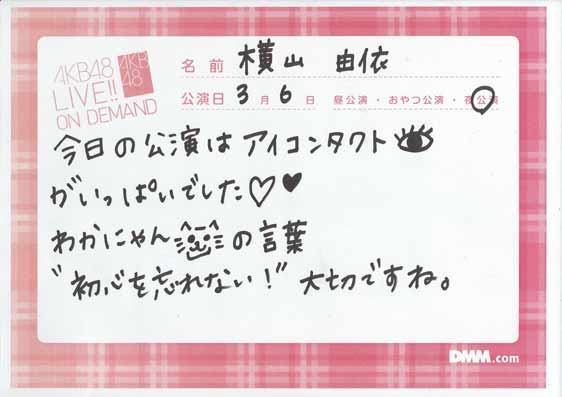 AKB48
LIVE!!
ON DEMAND
AKB
48
名前 横山 由依
公演日 3月6日 昼公演・おやつ公演・夜公演
今日の公演はアイコンタクト
がいっぱいでした♡♥
わかにゃん の言葉
"初心を忘れない!" 大切ですね。
DMM.com